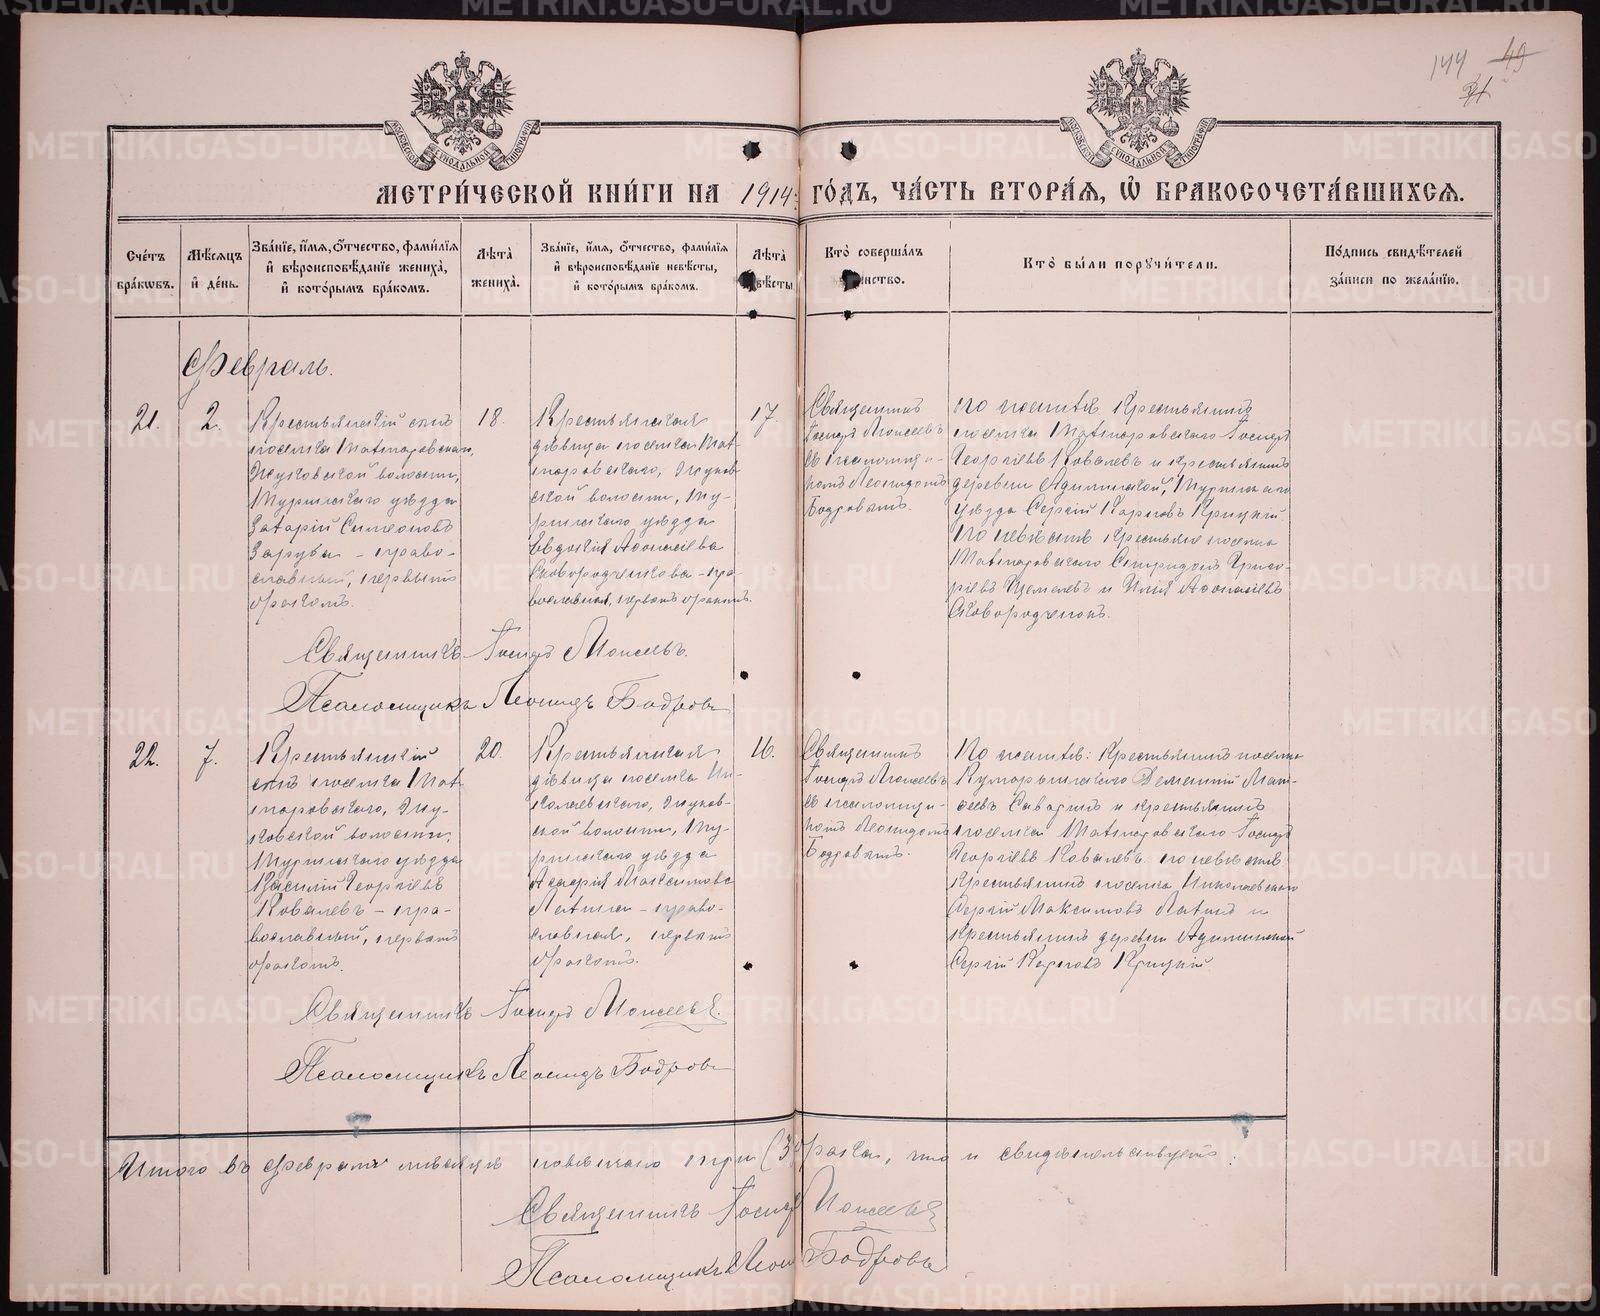 144 49
21
МОСКОВСКОЙ СѴНОДАЛЬНОЙ ТИПОГРАФІИ
МОСКОВСКОЙ СѴНОДАЛЬНОЙ ТИПОГРАФІИ
МЕТРИ́ЧЕСКОЙ КНИ́ГИ НА 1914 ГО́ДЪ, ЧА́СТЬ ВТОРА́Я, Ѡ҆ БРАКОСОЧЕТА́ВШИХСЯ.
Сче́тъ
бра́кѡвъ.
Мѣ́сяцъ
и҆ де́нь.
Зва́нїе, и҆́мя, ѻ҆́тчество, фами́лїя
и҆ вѣроисповѣ́данїе жениха̀,
и҆ кото́рымъ бра́комъ.
Лѣ́та
жениха̀.
Зва́нїе, и҆́мя, ѻ҆́тчество, фами́лїя
и҆ вѣроисповѣ́данїе невѣ́сты,
и҆ кото́рымъ бра́комъ.
Лѣ́та
невѣ́сты.
Кто̀ соверша́лъ
таинство.
Кто̀ бы́ли пору́чи́тели.
По́дпись свидѣ́телей
за́писи по жела́нїю.
Февраль.
21.
2.
Крестьянскій сынъ
поселка Матмаровскаго,
Жуковской волости,
Туринскаго уѣзда
Захарій Симеоновъ
Заруба - право-
славный, первымъ
бракомъ.
18.
Крестьянская
дѣвица поселка Мат-
маровскаго, Жуков-
ской волости, Ту-
ринскаго уѣзда
Евдокія Аѳонасіева
Сковородченкова - пра-
вославная, первымъ бракомъ.
17.
Священникъ
Госифъ Моисеевъ
съ псаломщи-
комъ Леонидомъ
Бодровымъ.
По женихѣ крестьянинъ
поселка Матмаровскаго Госифъ
Георгіевъ Ковалевъ и крестьянинъ
деревни Адитинской, Туринскаго
уѣзда Сергій Карповъ Крицкій
По невѣстѣ крестьяне поселка
Матмаровскаго Спиридонъ Григо-
ріевъ и Илія Аѳонасіевъ
Сковородченокъ.
Священникъ Госифъ Моисеевъ.
Псаломщикъ Леонидъ Бодровъ
22.
7.
Крестьянскій
сынъ поселка Мат-
маровскаго, Жу-
ковской волости,
Туринскаго уѣзда
Василій Георгіевъ
Ковалевъ - пра-
вославный, первымъ
бракомъ.
20.
Крестьянская
дѣвица поселка Ни-
колаевскаго, Жуков-
ской волости, Ту-
ринскаго уѣзда
Агафія Максимова
Латина - право-
славная, первымъ
бракомъ.
16.
Священникъ
Госифъ Моисеевъ
съ псаломщи-
комъ Леонидомъ
Бодровымъ.
По женихѣ: крестьянинъ поселка
Дементій Мат-
ѳеевъ и крестьянинъ
поселка Матмаровскаго Госифъ
Георгіевъ Ковалевъ. По невѣстѣ
крестьянинъ поселка Николаевскаго
Сергій Максимовъ Латинъ и
крестьянинъ деревни Адитинской
Сергій Карповъ Крицкій
Священникъ Госифъ Моисеевъ.
Псаломщикъ Леонидъ Бодровъ
Итого въ Февралѣ мѣсяцѣ повѣнчано три (3) брака, что и свидѣтельствуетъ:
Священникъ Госифъ Моисеевъ
Псаломщикъ Леонидъ Бодровъ
METRIKI.GASO-URAL.RU